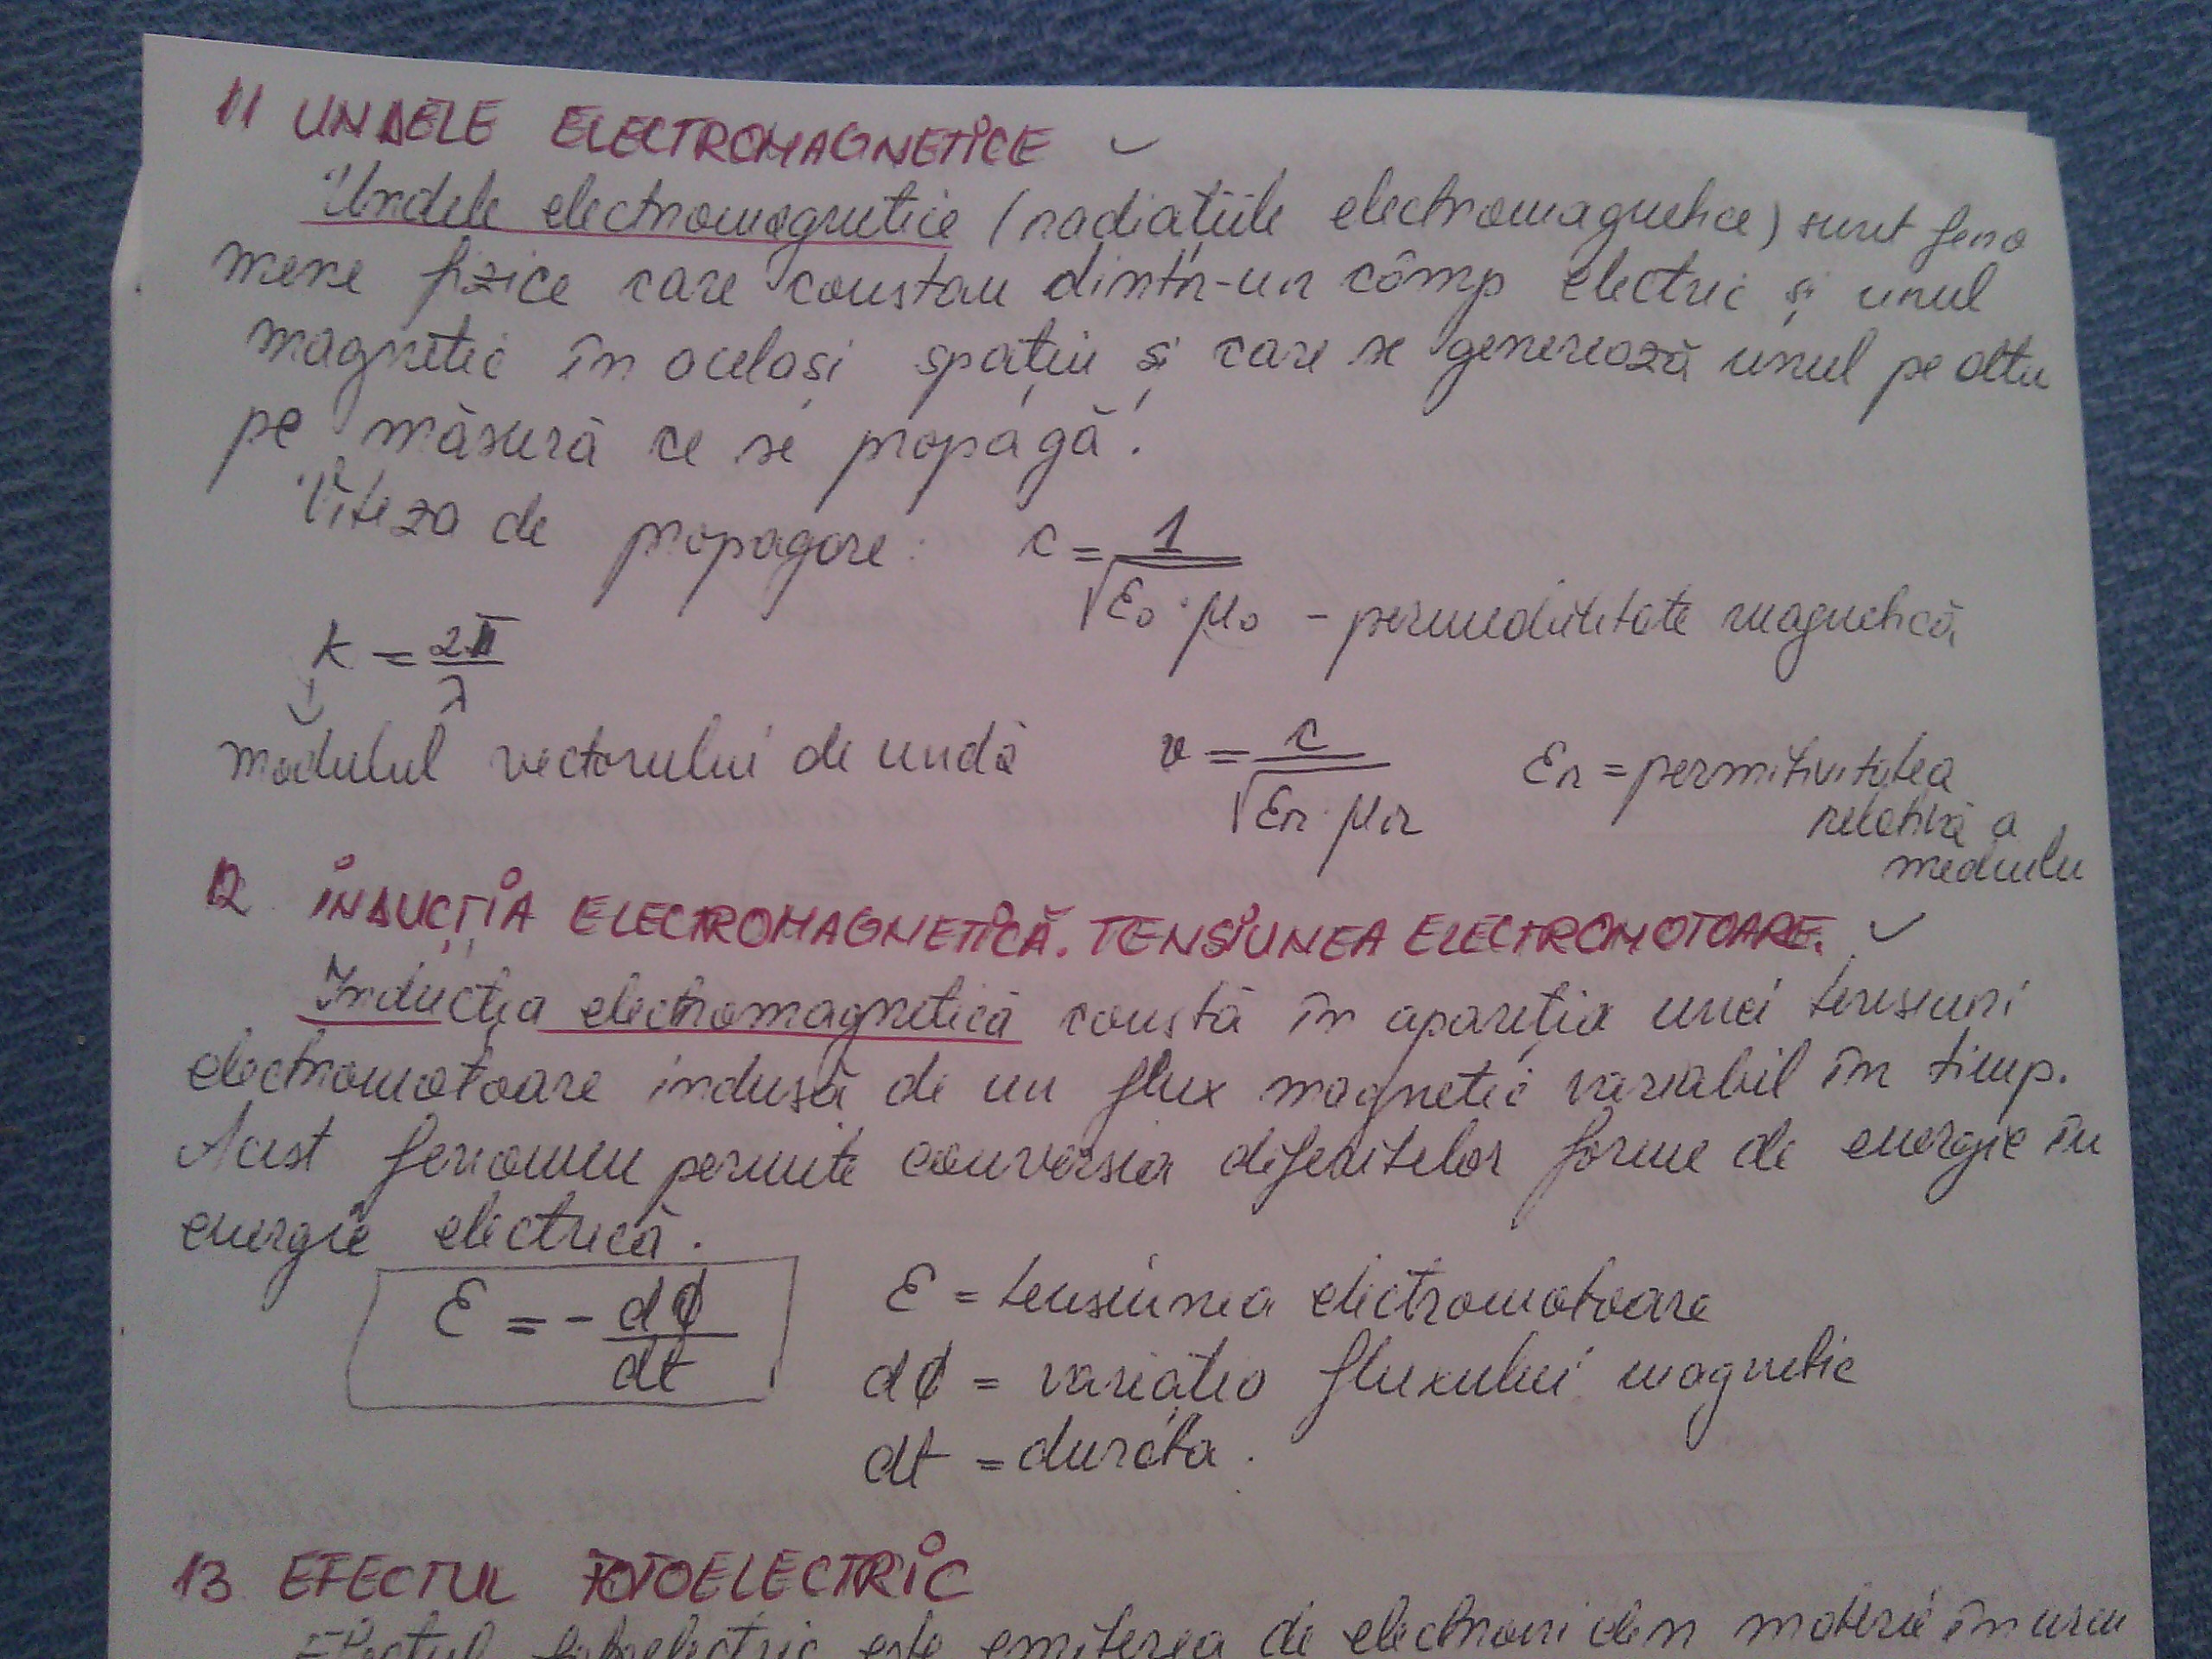 11 UNDELE ELECTROMAGNETICE
Undele electromagnetice (radiațiile electromagnetice) sunt feno
mene fizice care constau dintr-un câmp electric și unul
magnetic în același spațiu și care se generează unul pe altu
pe măsură ce se propagă.
Viteza de propagare: c = 1 / √ε₀·μ₀ - permeabilitate magnetică
k = 2π / λ
modulul vectorului de undă v = c / √εr·μr εr = permitivitatea
relativă a
mediulu
12 INDUCȚIA ELECTROMAGNETICĂ. TENSIUNEA ELECTROMOTOARE.
Inducția electromagnetică constă în apariția unei tensiuni
electromotoare indusă de un flux magnetic variabil în timp.
Acest fenomen permite conversia diferitelor forme de energie în
energie electrică.
ε = - dφ / dt
ε = tensiunea electromotoare
dφ = variația fluxului magnetic
dt = durata.
13 EFECTUL FOTOELECTRIC
Efectul fotoelectric este emiterea de electroni din materie în urm